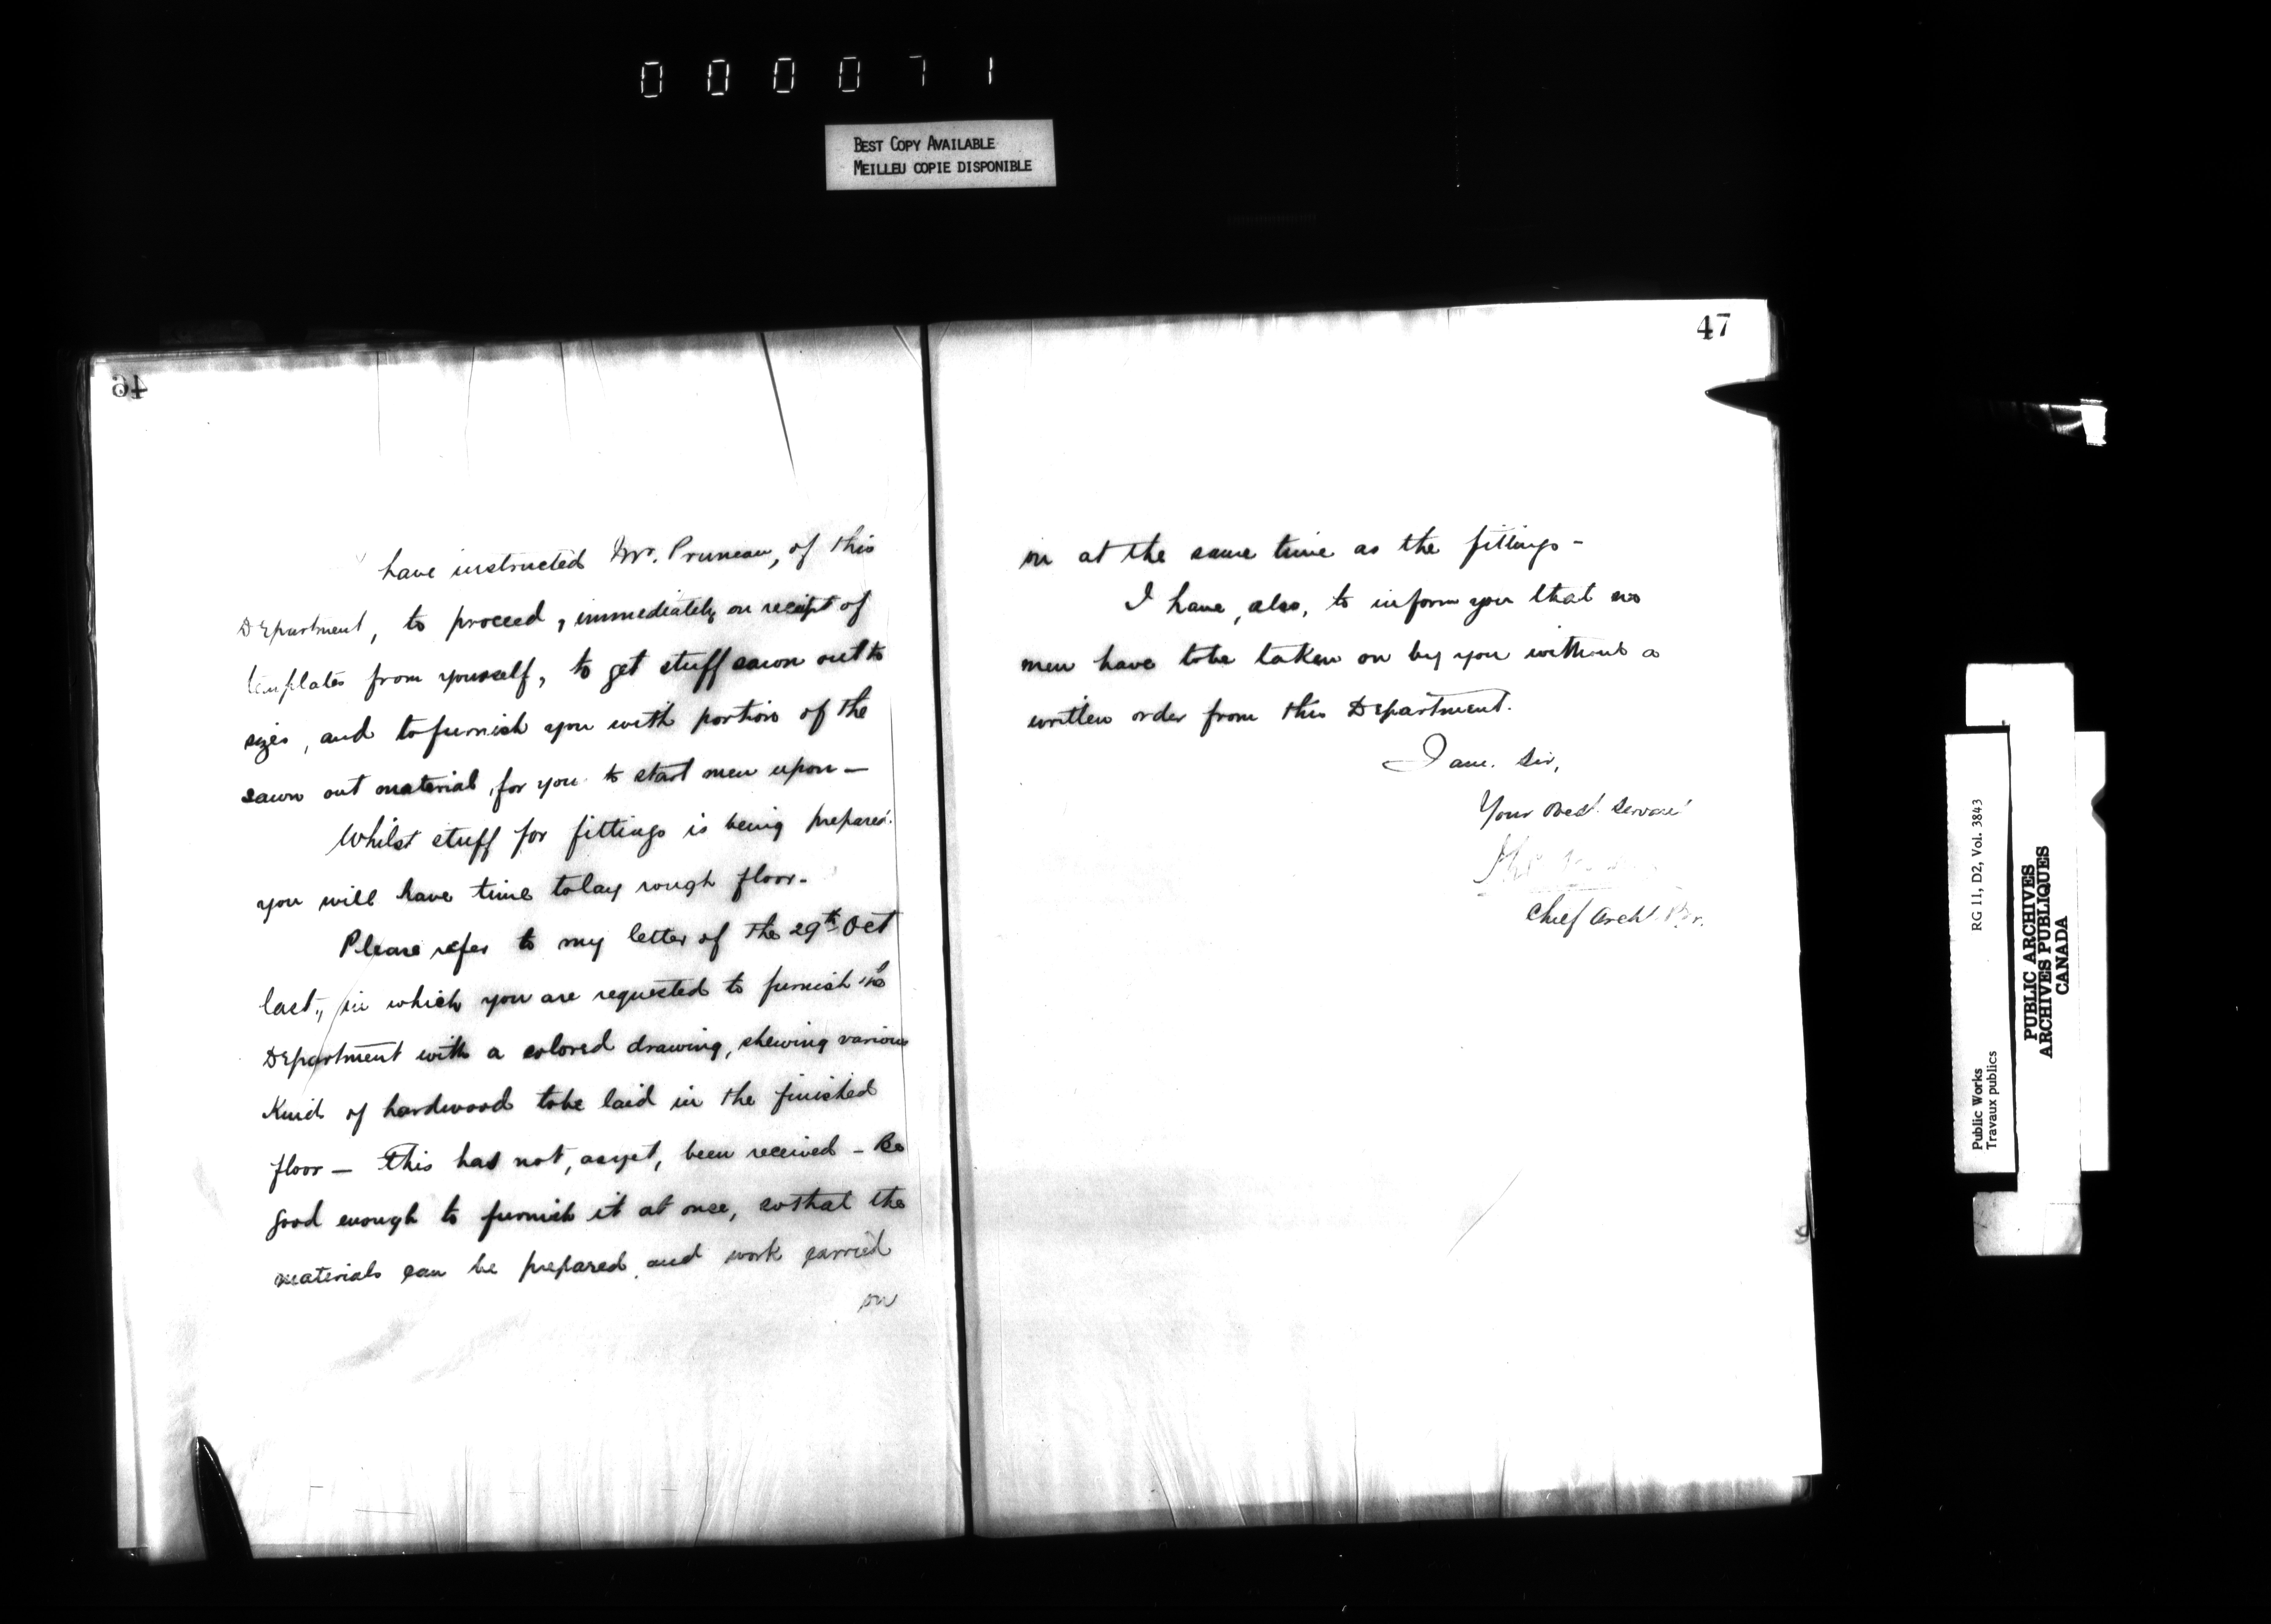 000071
BEST COPY AVAILABLE
MEILLEU COPIE DISPONIBLE
46
have instructed Mr. Pruneau, of this
Department, to proceed, immediately on receipt of
templates from yourself, to get stuff sawn out to
sizes, and to furnish you with portion of the
sawn out material, for you to start men upon —
Whilst stuff for fittings is being prepared
you will have time to lay rough floor.
Please refer to my letter of the 29th Oct
last, in which you are requested to furnish the
Department with a colored drawing, shewing various
Kind of hardwood to be laid in the finished
floor — This has not, as yet, been received — Be
good enough to furnish it at once, so that the
materials can be prepared and work carried
on
47
on at the same time as the fittings —
I have, also, to inform you that no
men have to be taken on by you without a
written order from this Department.
I am. Sir,
Your Obedt. Servant
Chief Archt.
Public Works
Travaux publics
RG 11, D2, Vol. 3843
PUBLIC ARCHIVES
ARCHIVES PUBLIQUES
CANADA